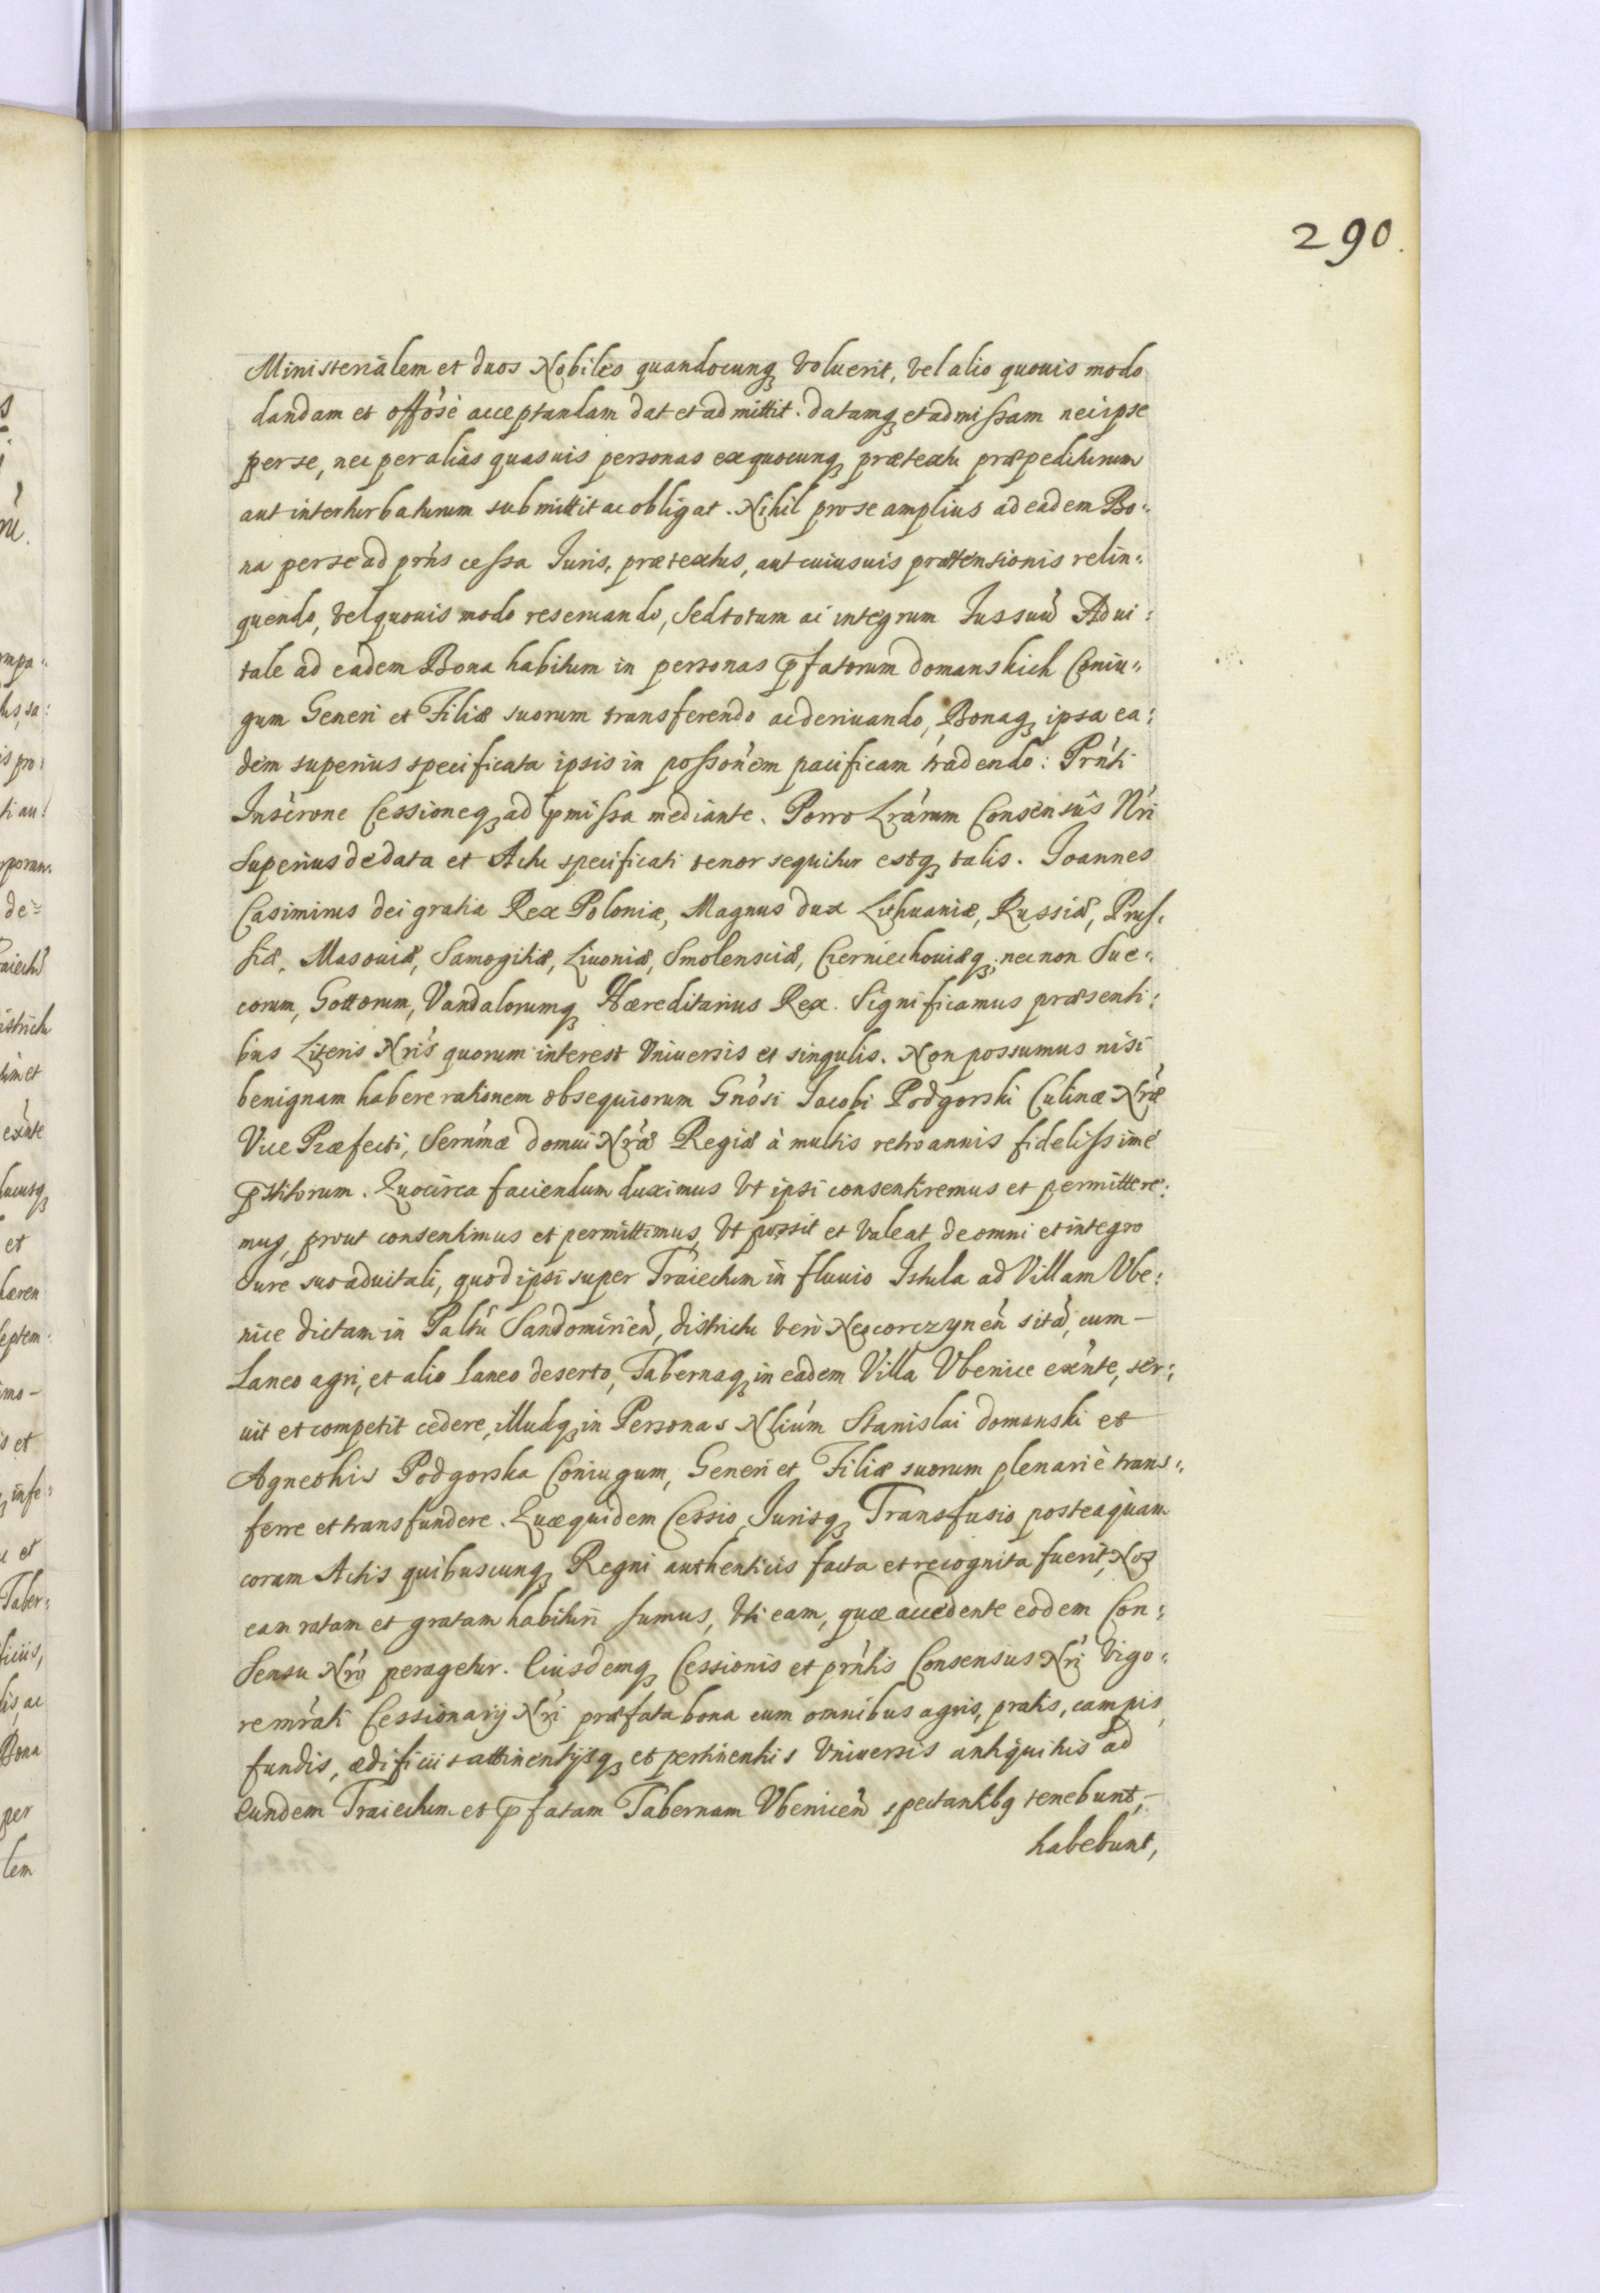 290.
Ministerialem et duos Nobiles quandocunq̨ voluerit, vel alio quouis modo
dandam et offośe acceptandam dat et admittit. datamq̨ et admissam nec ipse
per se, nec per alias quasuis personas ex quocunq̨ prætextu præpediturum
aut interturbaturum submittit ac obligat. Nihil pro se amplius ad eadem Bo:
na per se ad prńs cessa Juris, prætextus, aut cuiusuis prætensionis relin:
quendo, vel quouis modo reseruando, sed totum ac integrum Jus suū Adui:
tale ad eadem Bona habitum in personas p̄fatorum Domanskich Coniu:
gum Generi et Filiæ suorum transferendo ac deriuando, Bonaq̨ ipsa ea:
dem superius specificata ipsis in possońem pacificam tradendo: Prńti
Inscŕone Cessioneq̨ ad p̄missa mediante. Porro Lrárum Consensūs Nŕi
superius de data et Actu specificati tenor sequitur estq̨ talis. Joannes
Casimirus dei gratia Rex Poloniæ, Magnus dux Lithuaniæ, Russiæ, Prus:
siæ, Masouiæ, Samogitiæ, Liuoniæ, Smolensciæ, Czerniechouiæq̨, necnon Sue:
corum, Gottorum, Vandalorumq̨ Hæreditarius Rex. Significamus præsenti:
bus Literis Nŕis quorum interest Vniuersis et singulis. Non possumus nisi
benignam habere rationem obsequiorum Gnósi Jacobi Podgorski Culinæ Nŕæ
Vice Præfecti, Sernḿæ domui Nŕæ Regiæ à multis retro annis fidelissimé
p̄stitorum. Quocirca faciendum duximus vt ipsi consentiremus et permittere:
mus, prout consentimus et permittimus, vt possit et valeat de omni et integro
Jure suo aduitali, quod ipsi super Traiectum in fluuio Istula ad Villam Vbe:
nice dictam in Paltū Sandomirień, districtu verò Neocorczynēn sitā, cum –
Laneo agri, et alio laneo deserto, Tabernaq̨ in eadem Villa Vbenice exńte, ser:
uit et competit cedere, illudq̨ in Personas Nliúm Stanislai Domanski et
Agnethis Podgorska Coniugum, Generi et Filiæ suorum plenariè trans:
ferre et transfundere. Quæquidem Cessio, Jurisq̨ Transfusio posteaquam
coram Actis quibuscunq̨ Regni authenticis facta et recognita fuerit, Nos
eam ratam et gratam habituri sumus, vti eam, quæ accedente eodem Con:
sensu Nŕo peragetur. Eiusdemq̨ Cessionis et prńtis Consensus Nŕi vigo:
re mŕati Cessionarij Nŕi præfata bona cum omnibus agris, pratis, campis,
fundis, ædificiis attinentijsq̨ et pertinentiis Vniuersis antiquitus ad
eundem Traiectum et p̄fatam Tabernam Vbenicēn spectantibq̨ tenebunt, –
habebunt,